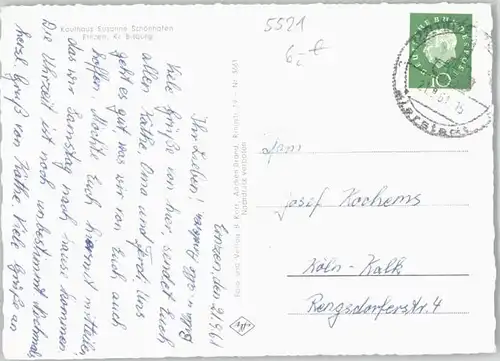 Kaufhaus Susanne Schönhofen
Einzen, Kr. Bitburg
5521
6.-
DEUTSCHE BUNDESPOST
10
21.9.61.-15
Foto und Verlag B. Korr, Aachen-Brand, Ringstr. 14 · Nr. 5661
Nachdruck verboten
den 21.9.61
Ihr Lieben!
Viele Grüße von hier, sendet Euch
allen Käthe, Oma und Ferdi. Uns
geht es gut was wir von Euch auch
hoffen. Möchte Euch hiermit mitteilen,
das wir Samstag nach haus kommen
Die Uhrzeit ist noch unbestimmt Nochmals
herzl. Gruß von Käthe Viele Grüße an
Fam
Josef Kochems
Köln-Kalk
Rengsdorferstr. 4